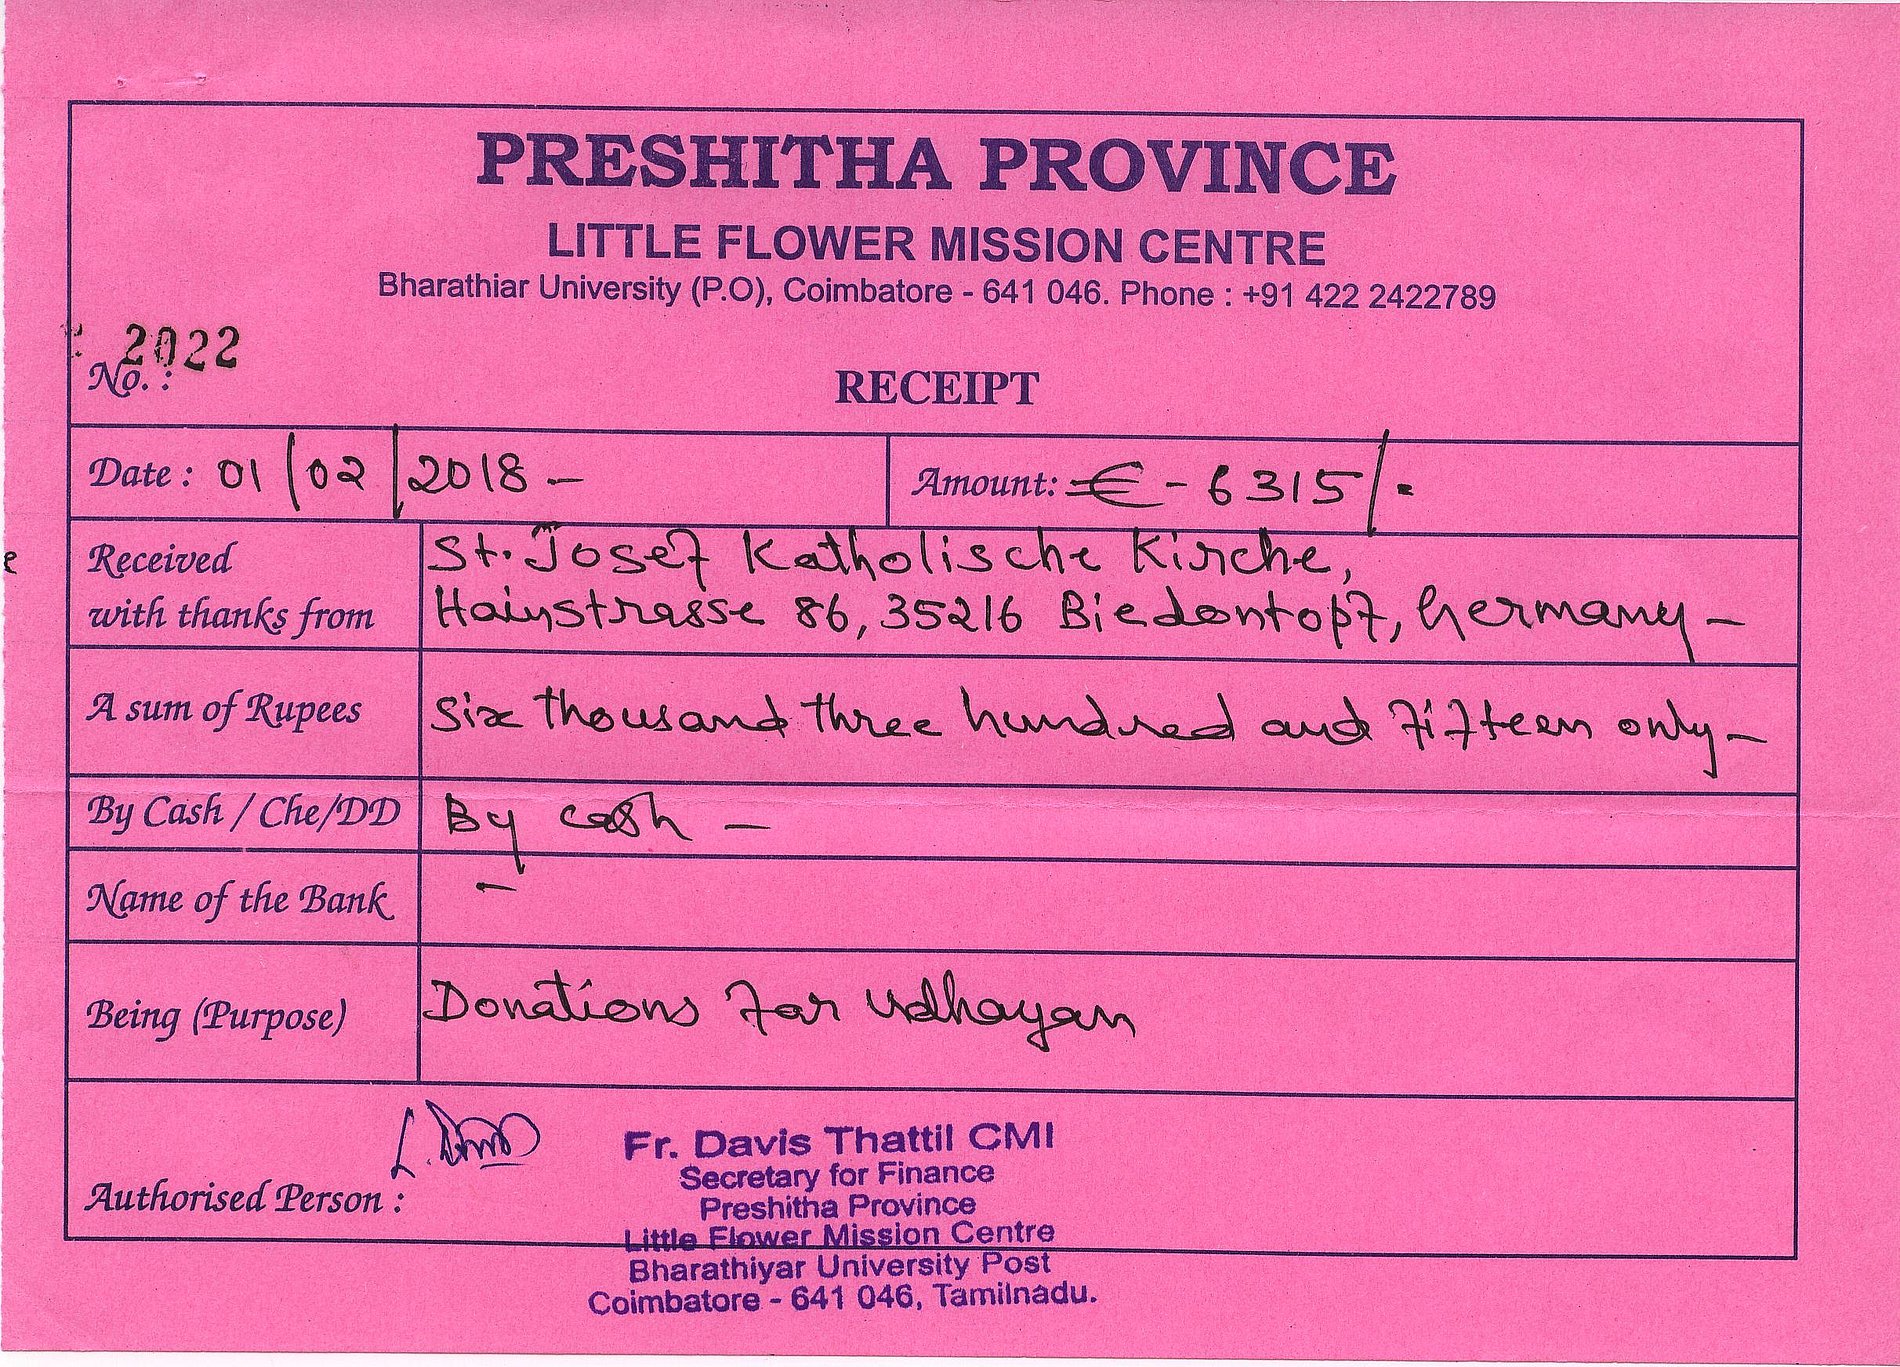 PRESHITHA PROVINCE
LITTLE FLOWER MISSION CENTRE
Bharathiar University (P.O), Coimbatore - 641 046. Phone : +91 422 2422789
2022
No. :
RECEIPT
Date : 01/02/2018 - Amount: € - 6315/-
Received with thanks from
St. Josef Katholische Kirche,
Hainstrasse 86, 35216 Biedontopf, Germany -
A sum of Rupees Six thousand three hundred and fifteen only -
By Cash / Che/DD By cash -
Name of the Bank -
Being (Purpose) Donations for Udhayan
Authorised Person :
Fr. Davis Thattil CMI
Secretary for Finance
Preshitha Province
Little Flower Mission Centre
Bharathiyar University Post
Coimbatore - 641 046, Tamilnadu.